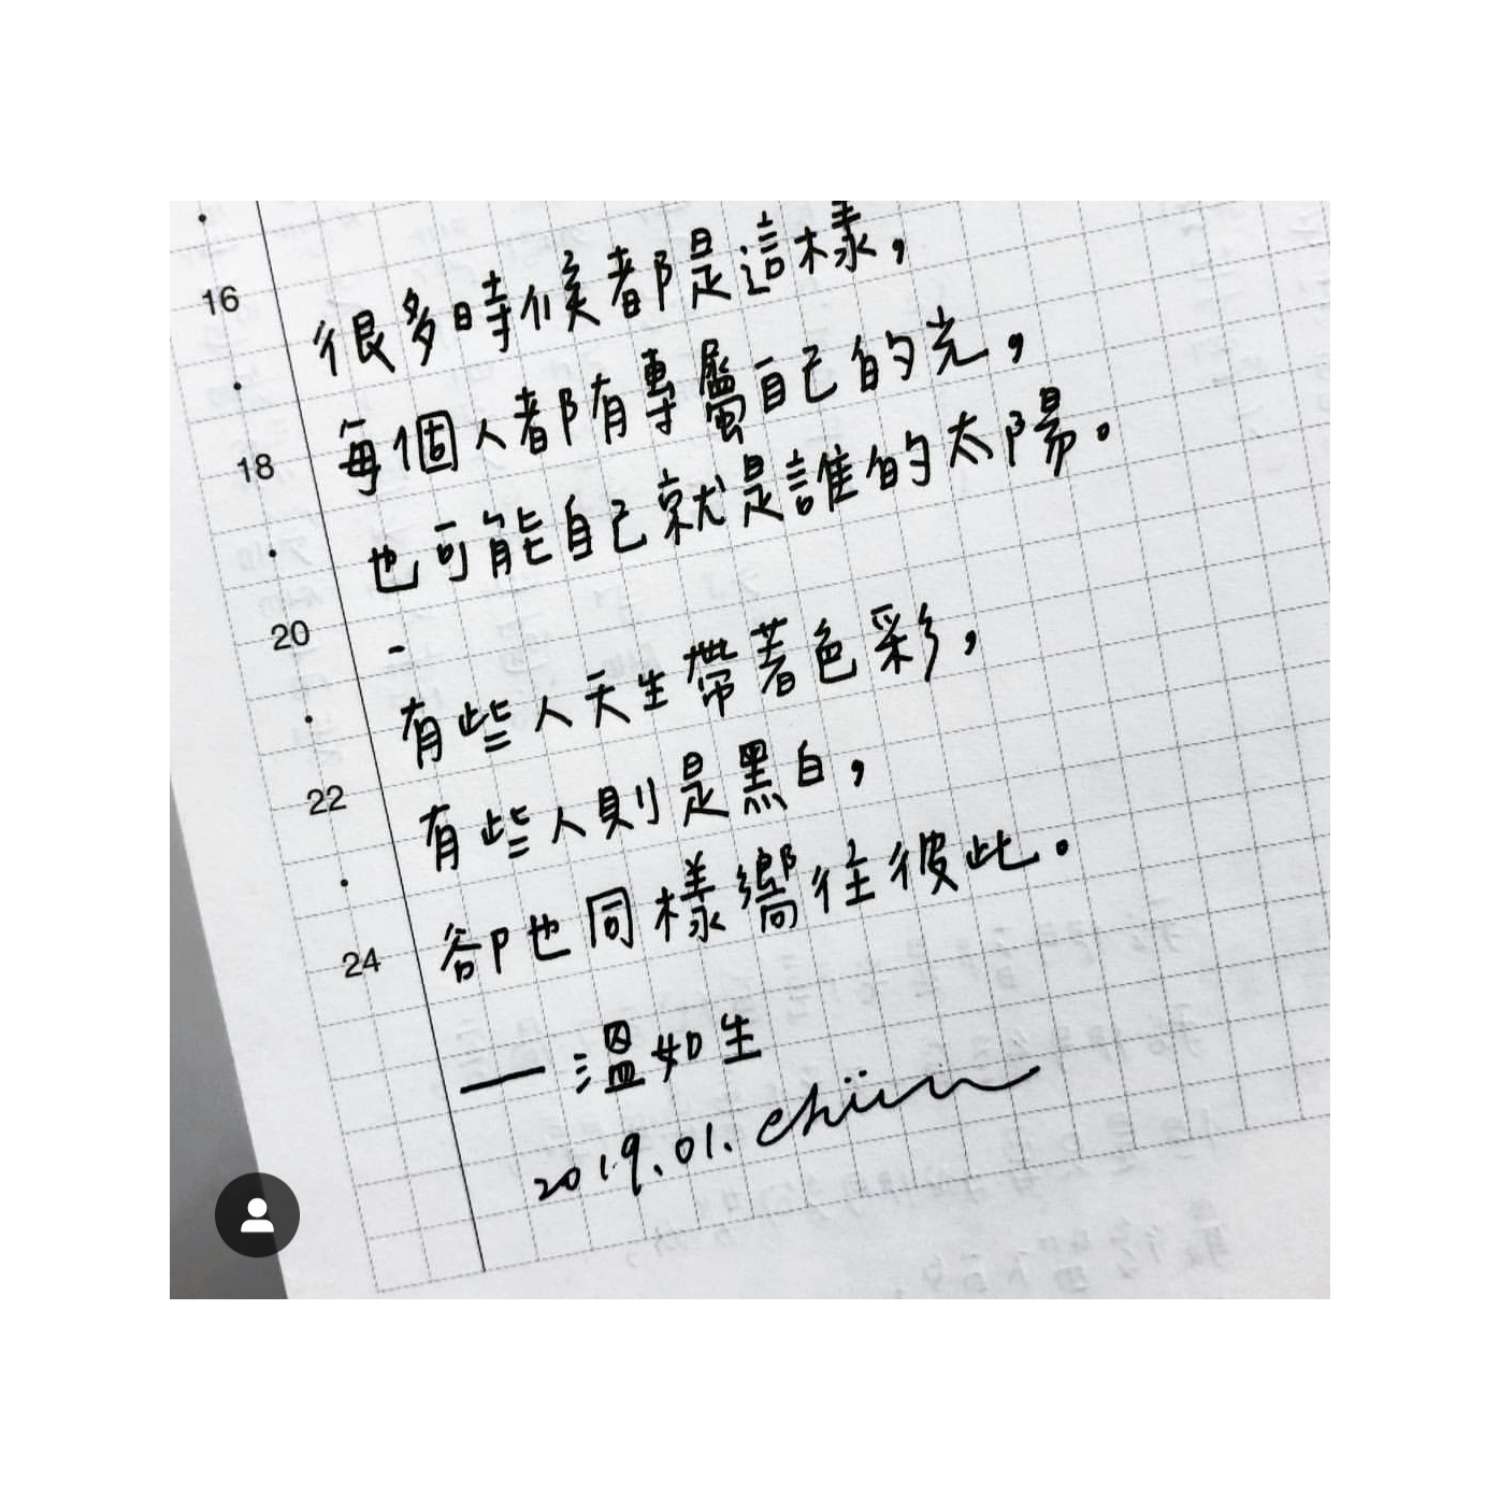 16
很多時候都是這樣，
每個人都有專屬自己的光，
18
也可能自己就是誰的太陽。
20
-
有些人天生帶著色彩，
22
有些人則是黑白，
24
卻也同樣嚮往彼此。
—溫如生
2019.01.